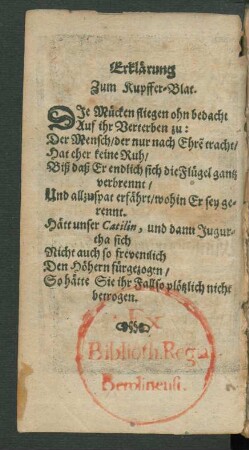 Erklärung
Zum Kupffer-Blat.
DIe Mücken fliegen ohn bedacht
Auf ihr Verterben zu:
Der Mensch/der nur nach Ehrē tracht/
Hat eher keine Ruh/
Biß daß Er endlich sich die Flügel gantz
verbrennt/
Und allzuspat erfährt/wohin Er sey ge-
rennt.
Hätt unser Catilin, und dann Jugur-
tha sich
Nicht auch so freventlich
Den Höhern fürgezogen/
So hätte Sie ihr Fall so plötzlich nicht
betrogen.
Ex
Biblioth. Regia
Berolinensi.